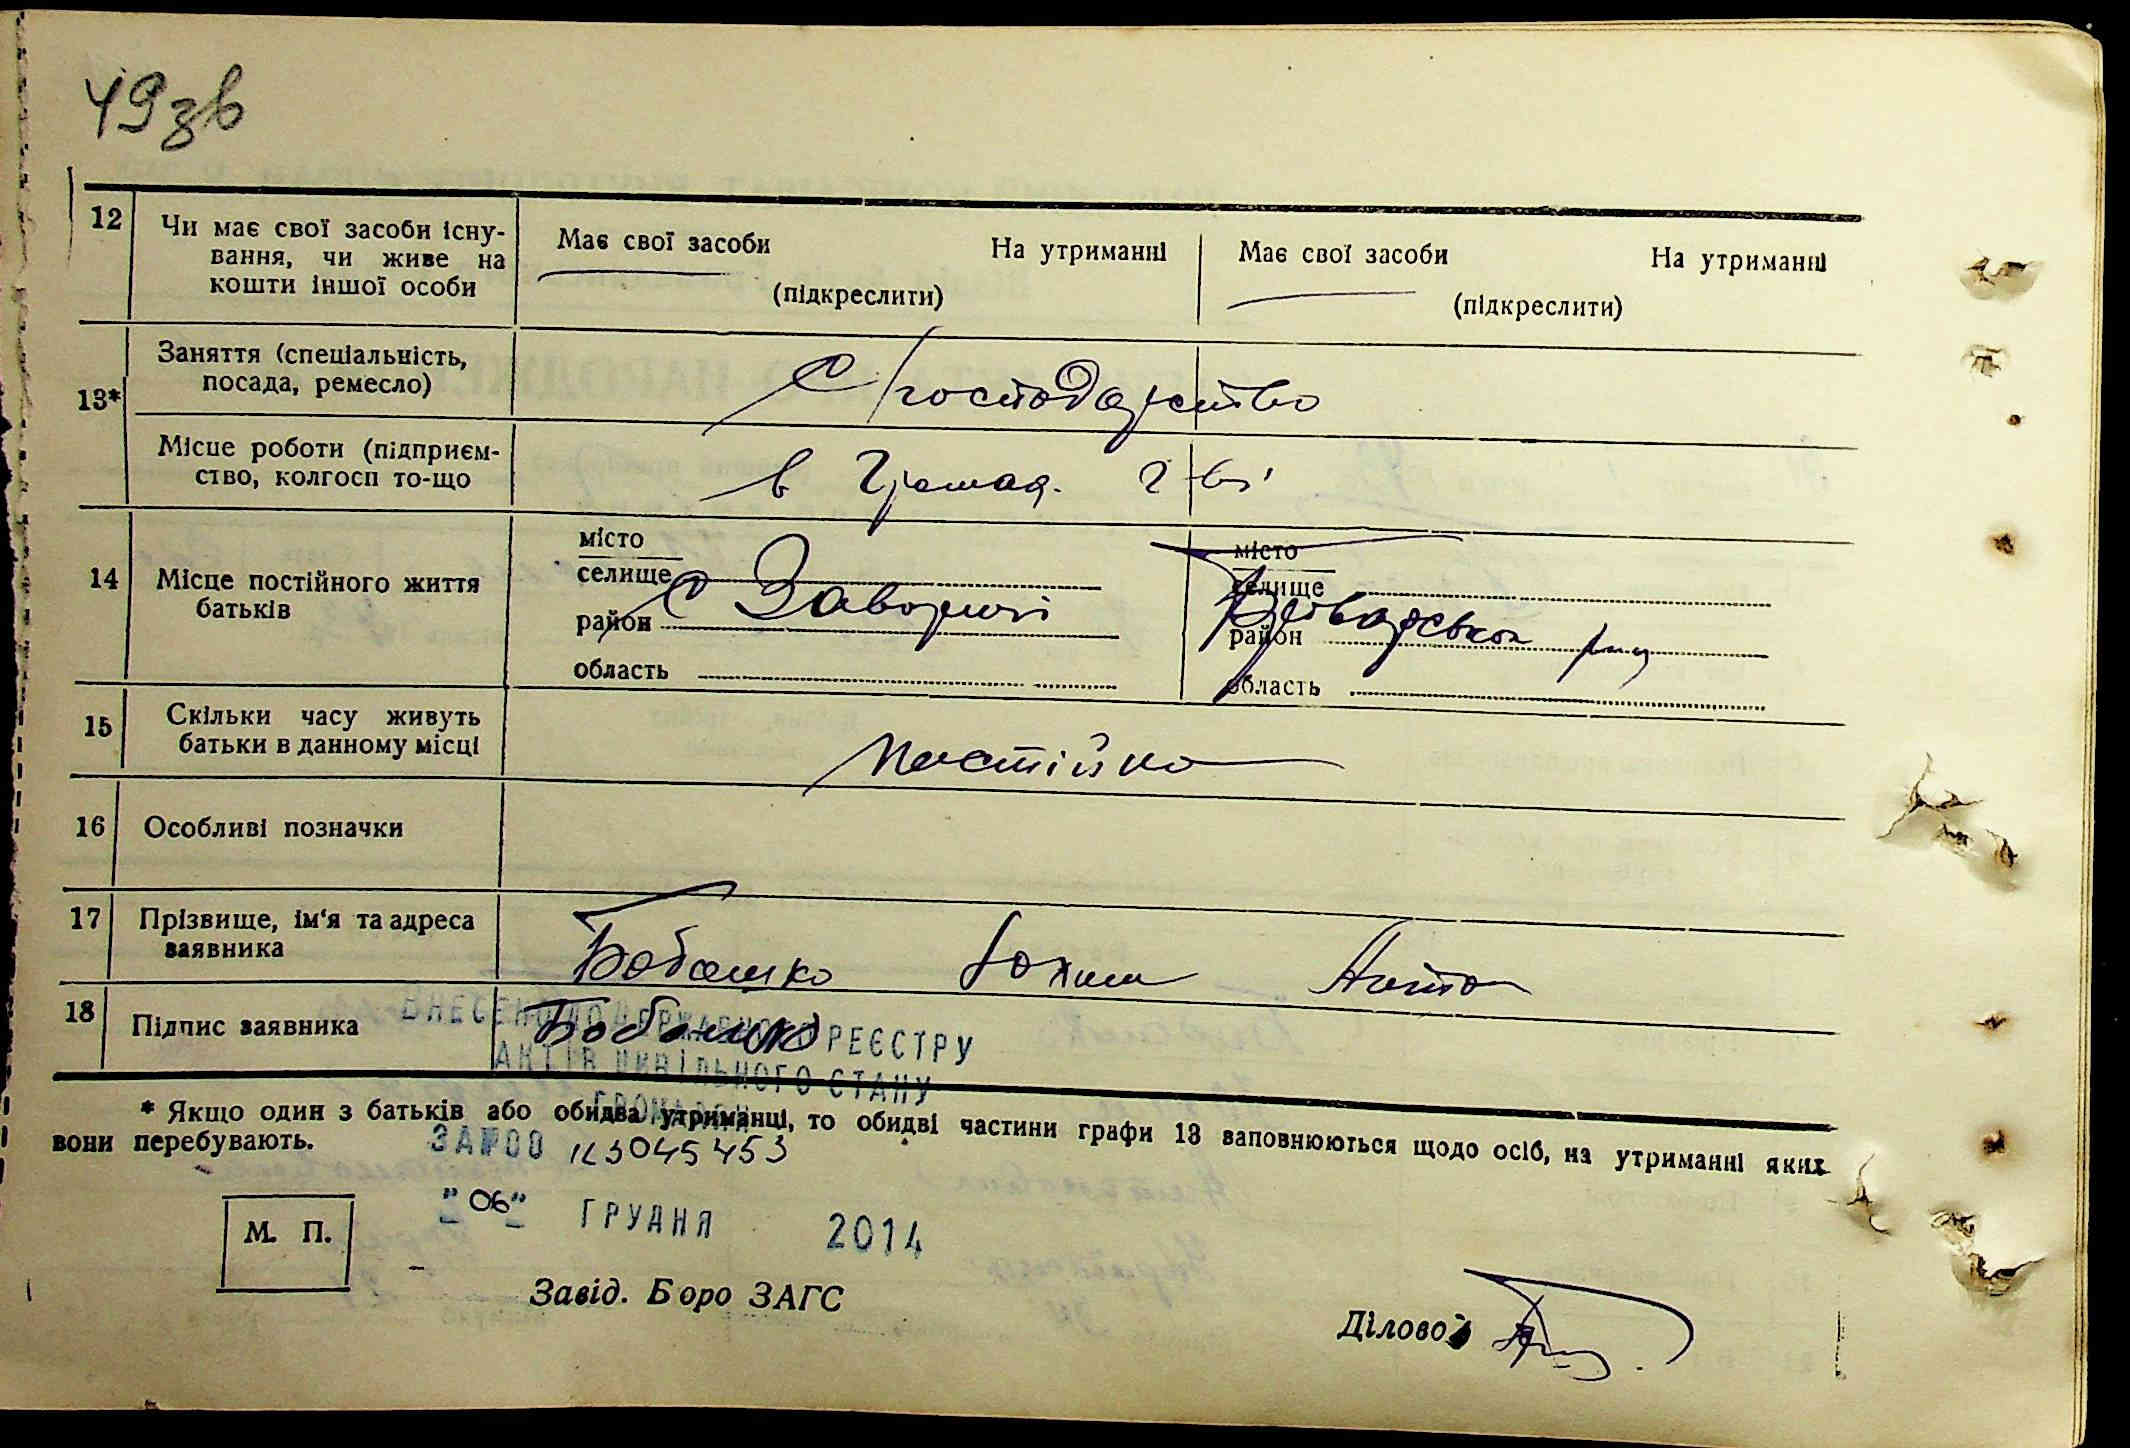 49зв
12 Чи має свої засоби існу-
вання, чи живе на
кошти іншої особи
Має свої засоби На утриманні
(підкреслити)
Має свої засоби На утриманні
(підкреслити)
13*
Заняття (спеціальність,
посада, ремесло)
С/господарство
Місце роботи (підприєм-
ство, колгосп то-що
в Громад. г-ві
14 Місце постійного життя
батьків
місто
селище
район
область
С Заворичі
місто
селище
район
область
15 Скільки часу живуть
батьки в данному місці
Постійно
16 Особливі позначки
17 Прізвище, ім'я та адреса
заявника
Бобошко Антон
18 Підпис заявника
Бобошко
ВНЕСЕНО ДО ДЕРЖАВНОГО РЕЄСТРУ
АКТІВ ЦИВІЛЬНОГО СТАНУ
ГРОМАДЯН
* Якщо один з батьків або обидва утриманці, то обидві частини графи 13 заповнюються щодо осіб, на утриманні яких
вони перебувають.
ЗА №00 113045453
"06" ГРУДНЯ 2014
М. П.
Завід. Боро ЗАГС
Діловод